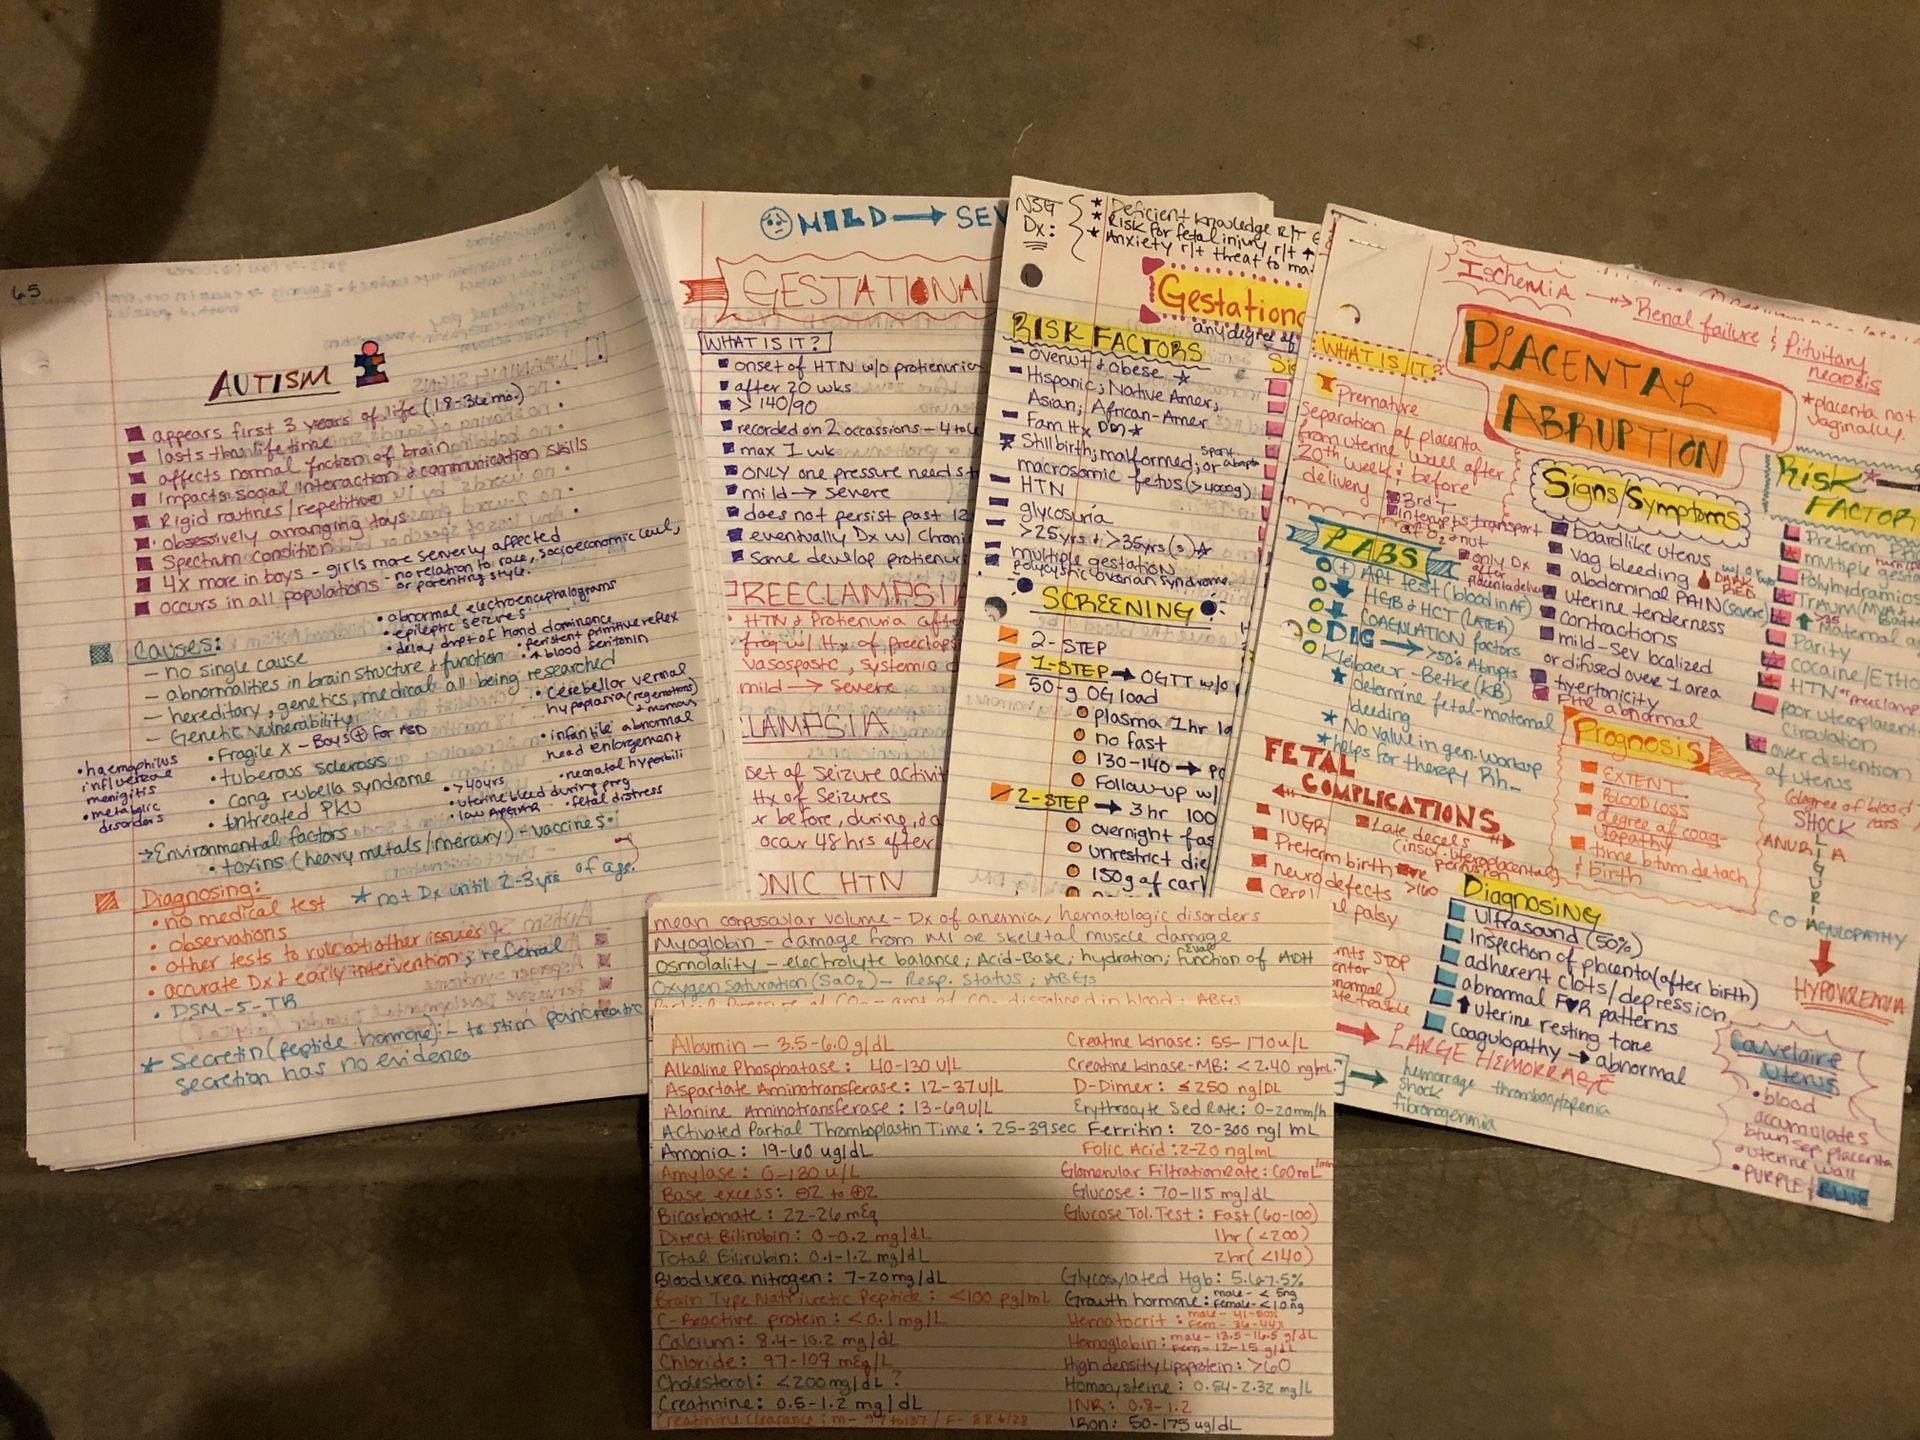 65
AUTISM
appears first 3 years of life (18-36mo.)
lasts thru life time
affects normal fnction of brain
impacts social interaction & communication skills
Rigid routines/repetitive
obsessively arranging toys
Spectrum condition
4x more in boys - girls more serverly affected
occurs in all populations - no relation to race, socioeconomic levl,
or parenting style.
Causes:
- no single cause
- abnormalities in brain structure & function
- hereditary, genetics, medical all being researched
- Genetic vulnerability
• Fragile X - Boys + for ASD
• tuberous sclerosis
• cong. rubella syndrome
• untreated PKU
→ Environmental factors
• toxins (heavy metals/mercury) - vaccines
• abnormal electroencephalograms
• epileptic seizures
• delay dmpt of hand dominence
• persistent primitive reflex
• ↑ blood seritonin
• cerebellar vermal
hypoplasia (regemotions)
• infantile abnormal
head enlargement
• haemophilus
influenzae
menigitis
• metabolic
disorders
• >40yrs
• uterine bleed during preg
• low APGAR
• neonatal hyperbili
• fetal distress
Diagnosing:
• no medical test
★ not Dx until 2-3yrs of age.
• observations
• other tests to rule out other issues
• accurate Dx & early intervention; referral
• DSM-5-TR
★ Secretin (peptide hormone) - to stim pancreatic
secretion has no evidence
MILD → SEV
GESTATIONAL
WHAT IS IT?
onset of HTN w/o protienuria
after 20 wks
> 140/90
recorded on 2 occassions - 4 to 6
max 1 wk
ONLY one pressure need
mild → severe
does not persist past 12
eventually Dx w/ chroni
Some develop protienuri
PREECLAMPSIA
HTN & Protienuria afte
freq w/ Hx of preeclaps
vasospastic, systemic d
mild → severe
LAMPSIA
set of seizure activit
Hx of seizures
r before, during, or a
occur 48 hrs after
ONIC HTN
NSG
Dx:
★ Deficient knowledge R/T
★ Risk for fetal injury r/t ↑
★ Anxiety r/t threat to ma
Gestationa
any degree of
RISK FACTORS
overwt & obese ★
Hispanic, Native Amer,
Asian, African-Amer
Fam Hx DM ★
Stillbirth; malformed; or spont. abortn
macrosomic fetus (>4000g)
HTN
glycosuria
>25yrs & >35yrs(s) ★
multiple gestation
polycystic ovarian syndrome
SCREENING
2-STEP
1-STEP → OGTT w/o
50-g OG load
plasma 1hr la
no fast
130-140 →
Follow-up w/
2-STEP → 3 hr 100
overnight fas
unrestrict die
150g of carb
Ischemia → Renal failure & Pituitary
necrosis
★ placenta not
vaginally.
PLACENTAL
ABRUPTION
WHAT IS IT?
Premature
separation of placenta
from uterine wall after
20th week & before
delivery
3rd T
interupts transport
of O2 & nut
only Dx
after
placenta delivery
LABS
(+) Apt test (blood in AF)
↓ HGB & HCT (LATER)
↓ COAGULATION factors
DIC → >50% Abrupts
Kleihauer-Betke (KB)
★ determine fetal-maternal
bleeding
★ No value in gen. workup
★ helps for therapy Rh-
Signs/Symptoms
boardlike uterus
vag bleeding DARK RED
abdominal PAIN (severe)
uterine tenderness
contractions
mild-sev localized
or difused over 1 area
hypertonicity
FHR abnormal
RISK
FACTOR
Preterm
multiple gesta
Polyhydramios
TrAUM (MVA & Batte
↑ Maternal a
Parity
cocaine/ETHO
HTN or preeclamp
poor uteroplacen
circulation
over distention
of uterus
(degree of blood
loss)
SHOCK
ANURIA
OLIGURIA
COAGULOPATHY
HYPOVOLEMIA
FETAL
COMPLICATIONS
IUGR
Preterm birth
neuro defects
Late decels
(insuf. uteroplacental
perfusion
>160
Prognosis
EXTENT
BLOOD LOSS
degree of coag-
ulopathy
time btwn detach
& birth
Diagnosing
Ultrasound (50%)
Inspection of placenta (after birth)
adherent clots/depression
abnormal F♥R patterns
↑ uterine resting tone
Coagulopathy → abnormal
LARGE HEMORRAGE
hemorrage thrombocytopenia
shock
fibronogenmia
Couvelaire
Uterus
• blood
accumulates
btwn sep. placenta
& uterine wall
• PURPLE & BLUE
mean corpuscular volume - Dx of anemia, hematologic disorders
Myoglobin - damage from MI or skeletal muscle damage
Osmolality - electrolyte balance; Acid-Base; hydration; Eval function of ADH
Oxygen Saturation (SaO2) - Resp. Status; ABGs
Albumin - 3.5-6.0 g/dL
Alkaline Phosphatase: 40-130 u/L
Aspartate Aminotransferase: 12-37 u/L
Alanine Aminotransferase: 13-69 u/L
Activated Partial Thromboplastin Time: 25-39sec
Amonia: 19-60 ug/dL
Amylase: 0-130 u/L
Base excess: ⊖2 to ⊕2
Bicarbonate: 22-26 mEq
Direct Bilirubin: 0-0.2 mg/dL
Total Bilirubin: 0.1-1.2 mg/dL
Blood urea nitrogen: 7-20 mg/dL
Brain Type Natriuretic Peptide: <100 pg/mL
C-Reactive protein: <0.1 mg/L
Calcium: 8.4-10.2 mg/dL
Chloride: 97-107 mEq/L
Cholesterol: <200 mg/dL ?
Creatinine: 0.5-1.2 mg/dL
Creatine kinase: 55-170 u/L
Creatine kinase-MB: <2.40 ng/mL
D-Dimer: ≤250 ng/DL
Erythrocyte Sed Rate: 0-20mm/h
Ferritin: 20-300 ng/mL
Folic Acid: 2-20 ng/mL
Glomerular Filtration Rate: 60mL/min
Glucose: 70-115 mg/dL
Glucose Tol. Test: Fast (60-100)
1hr (<200)
2hr (<140)
Glycosylated Hgb: 5.6-7.5%
Growth hormone: male - < 5ng
female - <10 ng
Hematocrit: male - 41-50%
Fem - 36-44%
Hemoglobin: male - 13.5-16.5 g/dL
Fem - 12-15 g/dL
High density Lipoprotein: >60
Homocysteine: 0.54-2.32 mg/L
INR: 0.8-1.2
IRon: 50-175 ug/dL